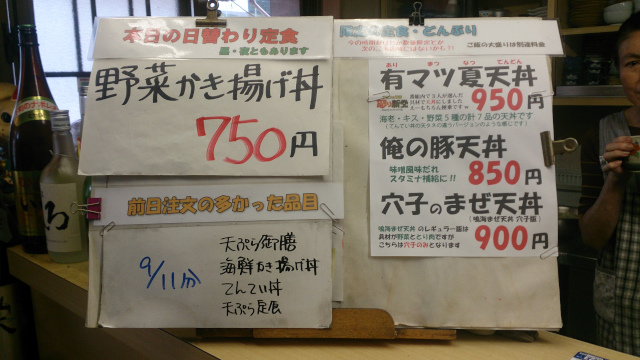 本日の日替わり定食
昼・夜ともあります
野菜かき揚げ丼
750円
前日注文の多かった品目
9/11分
天ぷら御膳
海鮮かき揚げ丼
てんてい丼
天ぷら定食
定食・どんぶり
ご飯の大盛りは別途料金
あり まつ なつ てんどん
有マツ夏天丼
950円
海老・キス・野菜5種の計7品の天丼です
俺の豚天丼
味噌風味だれ
スタミナ補給に!!
850円
穴子のまぜ天丼
(鳴海まぜ天丼 穴子版)
鳴海まぜ天丼 のレギュラー版は
具材が野菜ととり肉ですが
こちらは穴子のみとなります
900円